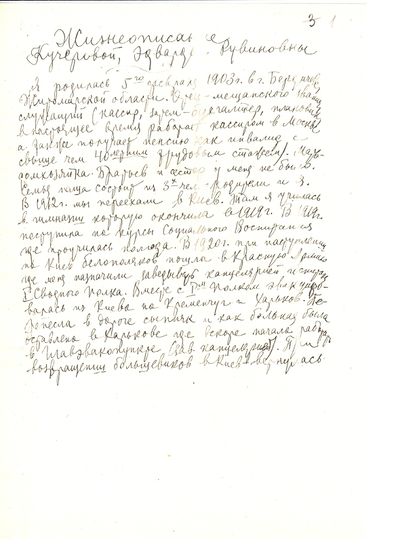 3 1
Жизнеописание
Кучеровой, Эдварды Рувиновны
Я родилась 5го февраля 1903г. в г. Бердичев,
Житомирской области. Отец - мещанского звания
служащий (кассир, бухгалтер, плановик
в настоящее время работает кассиром в Москве,
а также получает пенсию как инвалид с
свыше чем 40летним трудовым стажем). Мать
домхозяйка. Братьев и сестер у меня не было.
Семья наша состоит из 3х чел. Родители и Я.
В 1912г. мы переехали в Киев. Там я училась
в гимназии которую окончила в 1919г. В 1919г.
поступила на курсы Социального Воспитания
где проучилась полгода. В 1920г. при наступлении
на Киев белополяков пошла в Красную Армию
где меня назначили заведывать канцелярией
I Сводного Полка. Вместе с Полком эвакуиро-
валась из Киева на Кременчуг и Харьков. Пе-
ренесла в дороге сыпняк и как больная была
оставлена в Харькове где вскоре начала работать
в Главэвакопункте (зав. канцелярией). При
возвращении большевиков в Киев вернулась